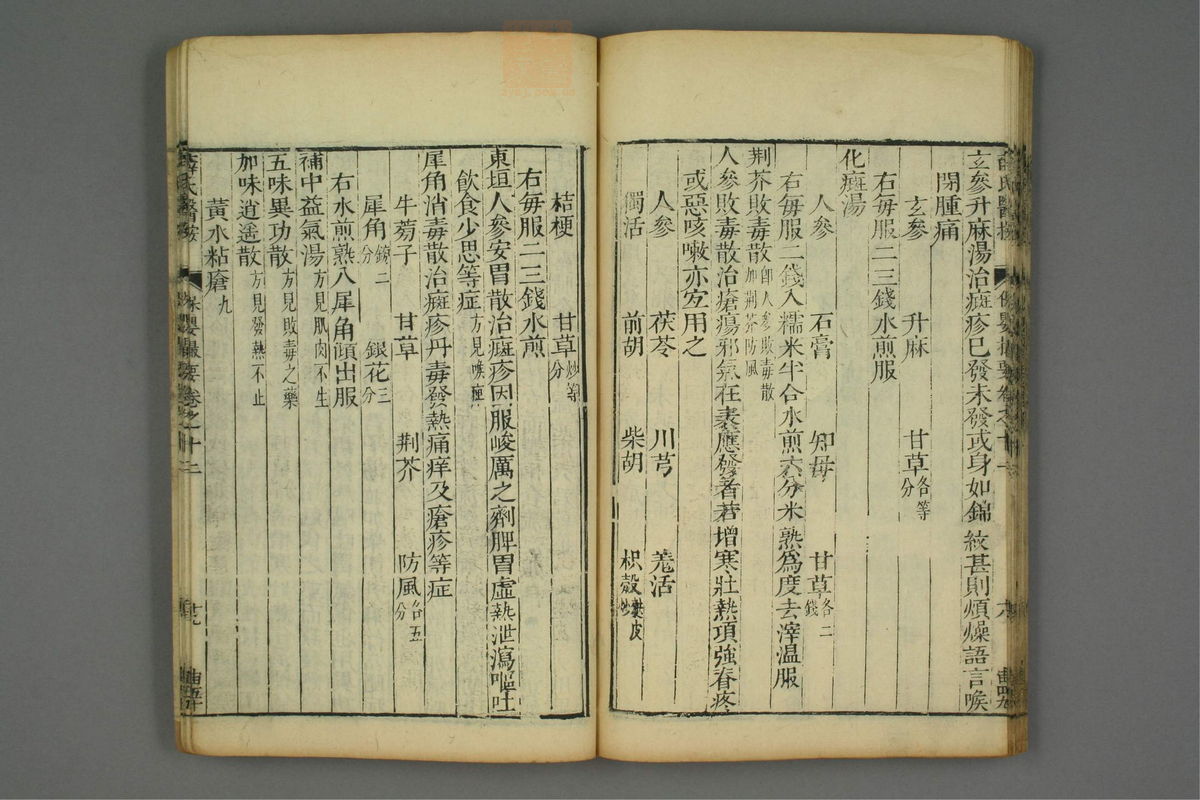 玄參升麻湯治癍疹已發未發或身如錦紋甚則煩燥語言喉
閉腫痛
玄參　升麻　甘草各等分
右每服二三錢水煎服
化癍湯
人參　石膏　知母　甘草各二錢
右每服二錢入糯米半合水煎六分米熟爲度去滓温服
荆芥敗毒散即人參敗毒散加荆芥防風
人參敗毒散治瘡瘍邪氣在表應發者若增寒壯熱項強脊疼
或惡咳嗽亦宜用之
人參　茯苓　川芎　羌活
獨活　前胡　柴胡　枳殻麸炒
桔梗　甘草炒等分
右每服二三錢水煎
東垣人參安胃散治癍疹因服峻厲之劑脾胃虚熱泄瀉嘔吐
飲食少思等症方見喉痺
犀角消毒散治癍疹丹毒發熱痛痒及瘡疹等症
牛蒡子　甘草　荆芥　防風各五分
犀角鎊二分　銀花三分
右水煎熟入犀角傾出服
補中益氣湯方見肌肉不生
五味異功散方見敗毒之藥
加味逍遥散方見發熱不止
黃水粘瘡九
薛氏醫按　保嬰撮要卷之十二